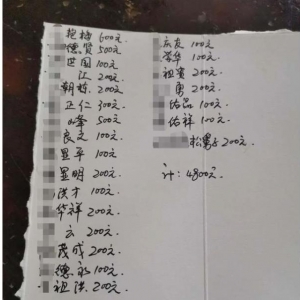 艳梅 600元.
德贤 500元.
世国 100元
江 200元.
朝栋. 200元
正仁 300元.
峰 500元.
良文 100元.
显平 100元
显明 200元.
洪才 100元
华祥 200元.
云 200元.
茂成 200元
德永 100元
祖洪. 200元
庆友 100元
荣华 100元.
祖宾 200元
勇 200元.
佑品 100元
佑祥 100元.
松 200元.
计: 4800元.